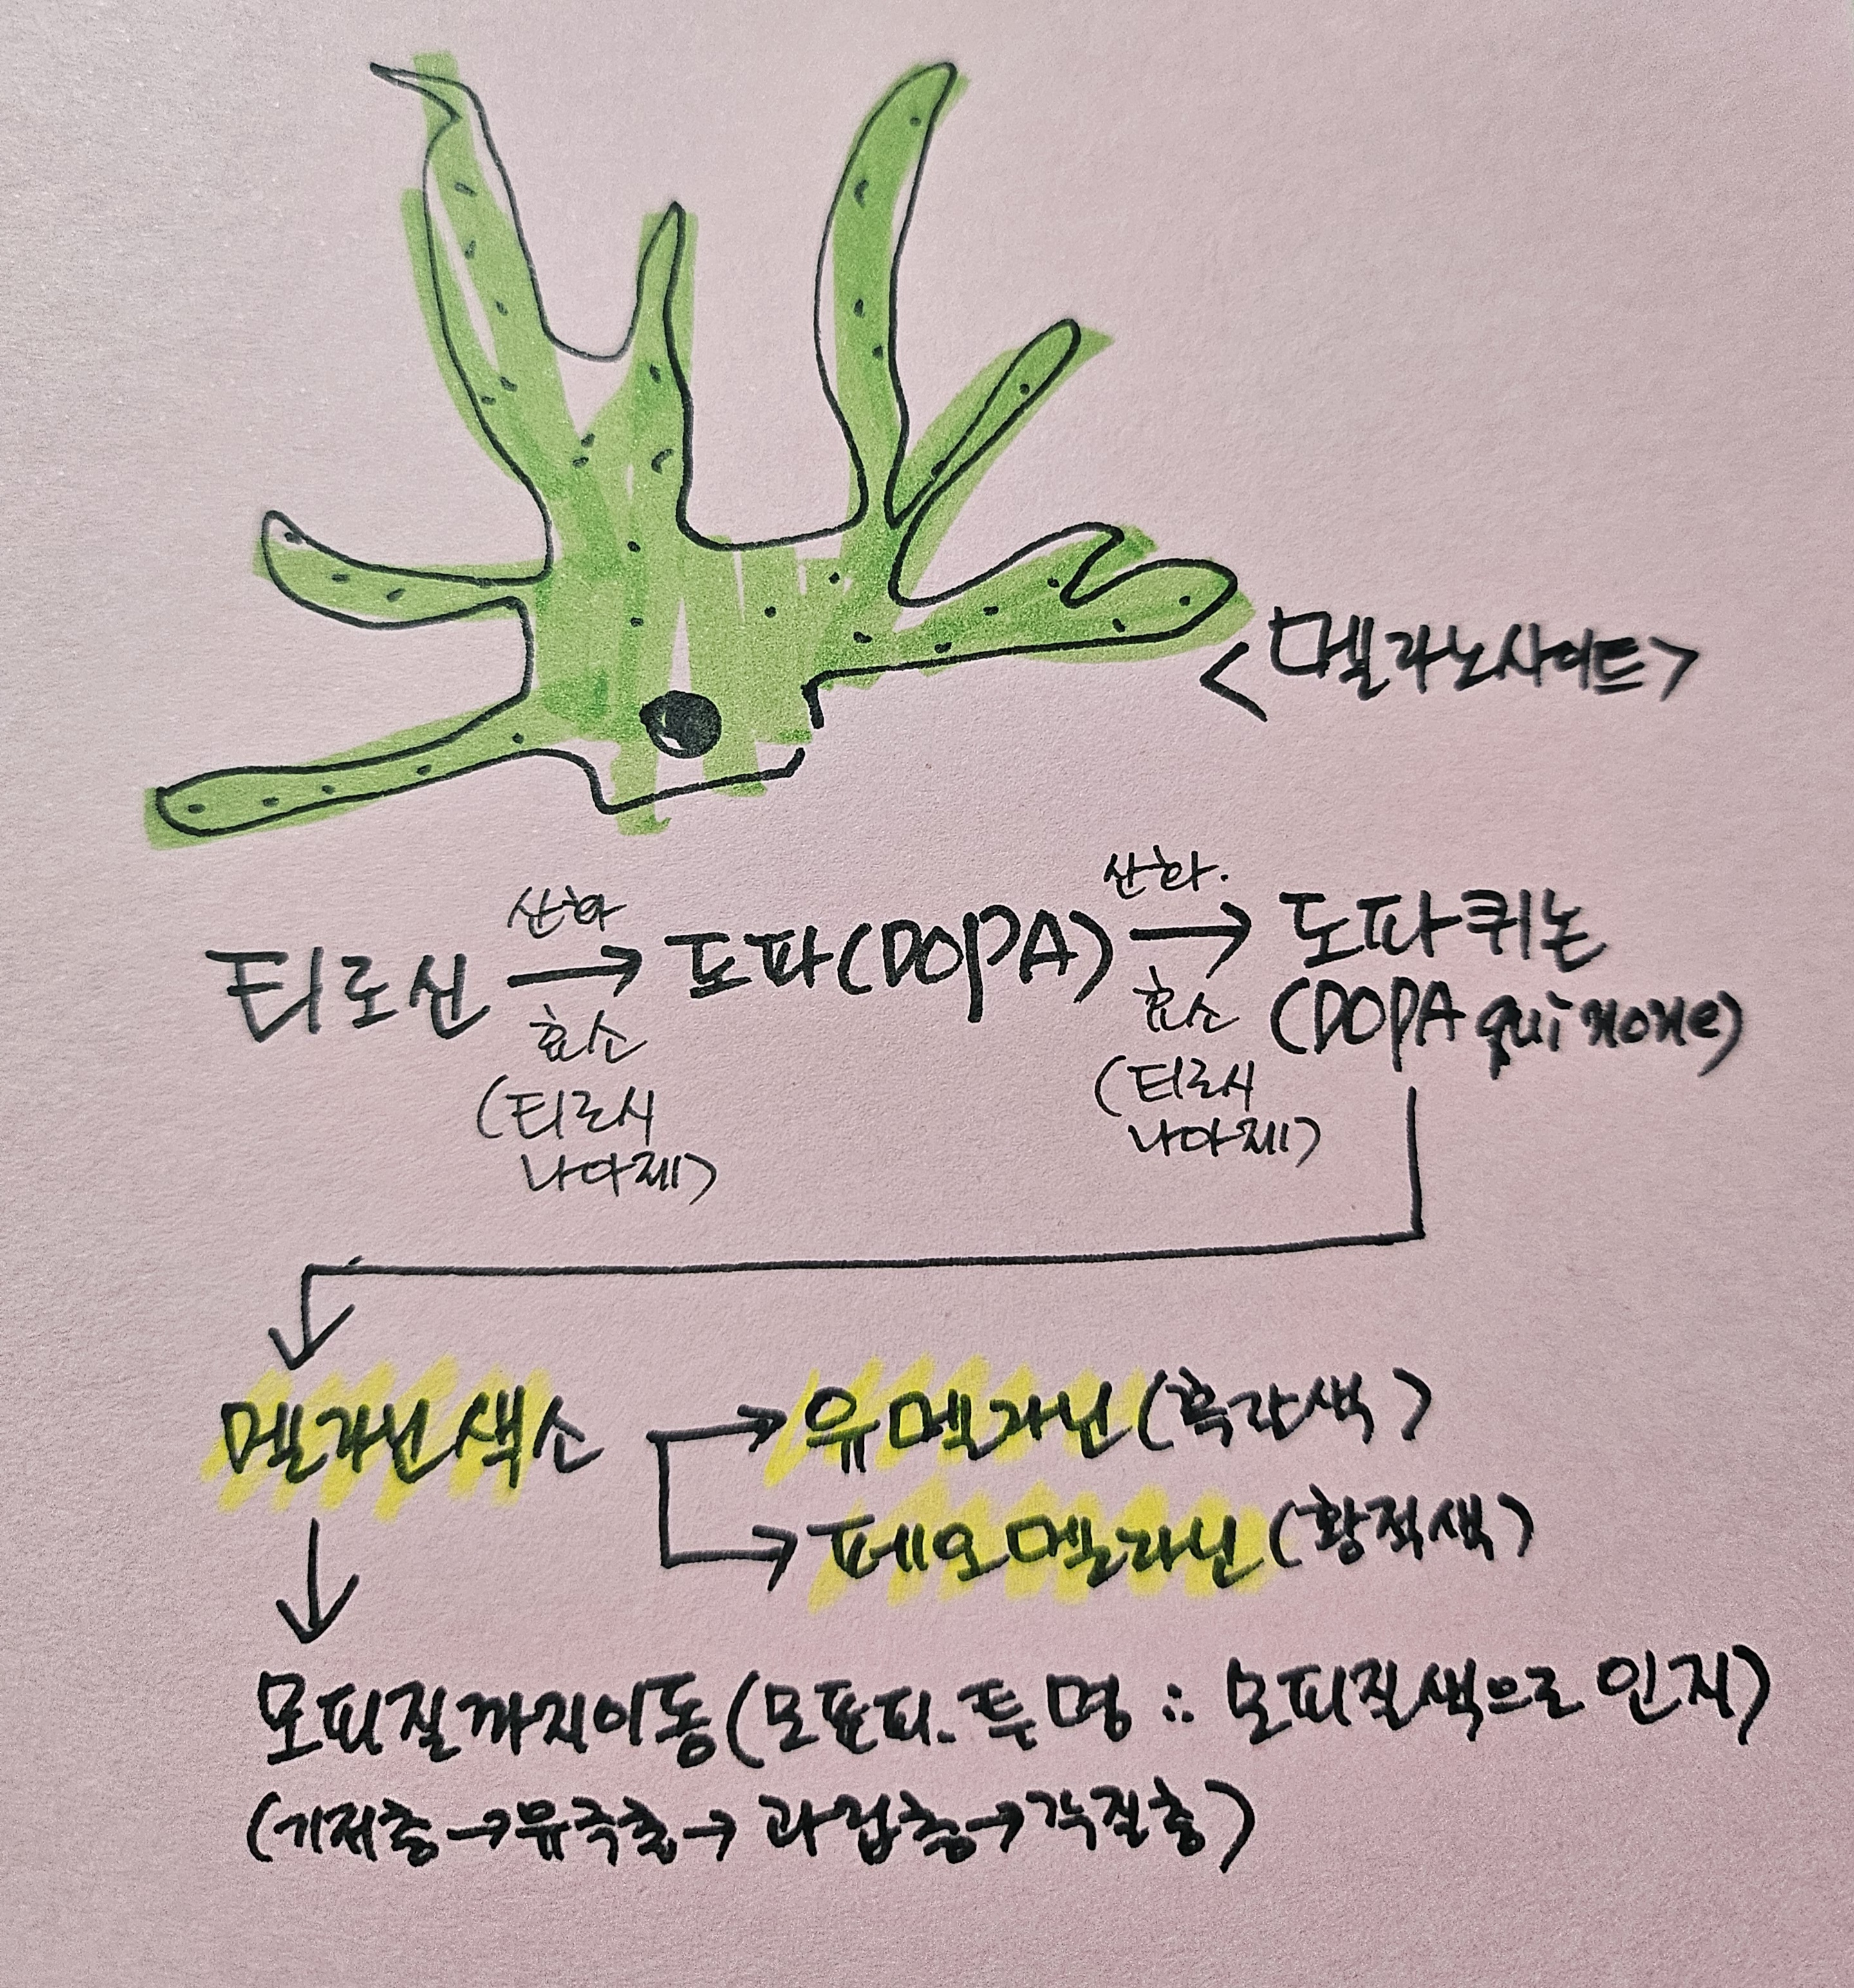 <멜라노사이트>
산화 산화.
티로신 → 도파(DOPA) → 도파퀴논
효소 효소 (DOPA quinone)
(티로시 (티로시
나아제) 나아제)
멜라닌색소 → 유멜라닌(흑갈색)
→ 페오멜라닌(황적색)
↓
모피질까지이동(모표피-투명 ∴ 모피질색으로 인지)
(기저층→유극층→과립층→각질층)